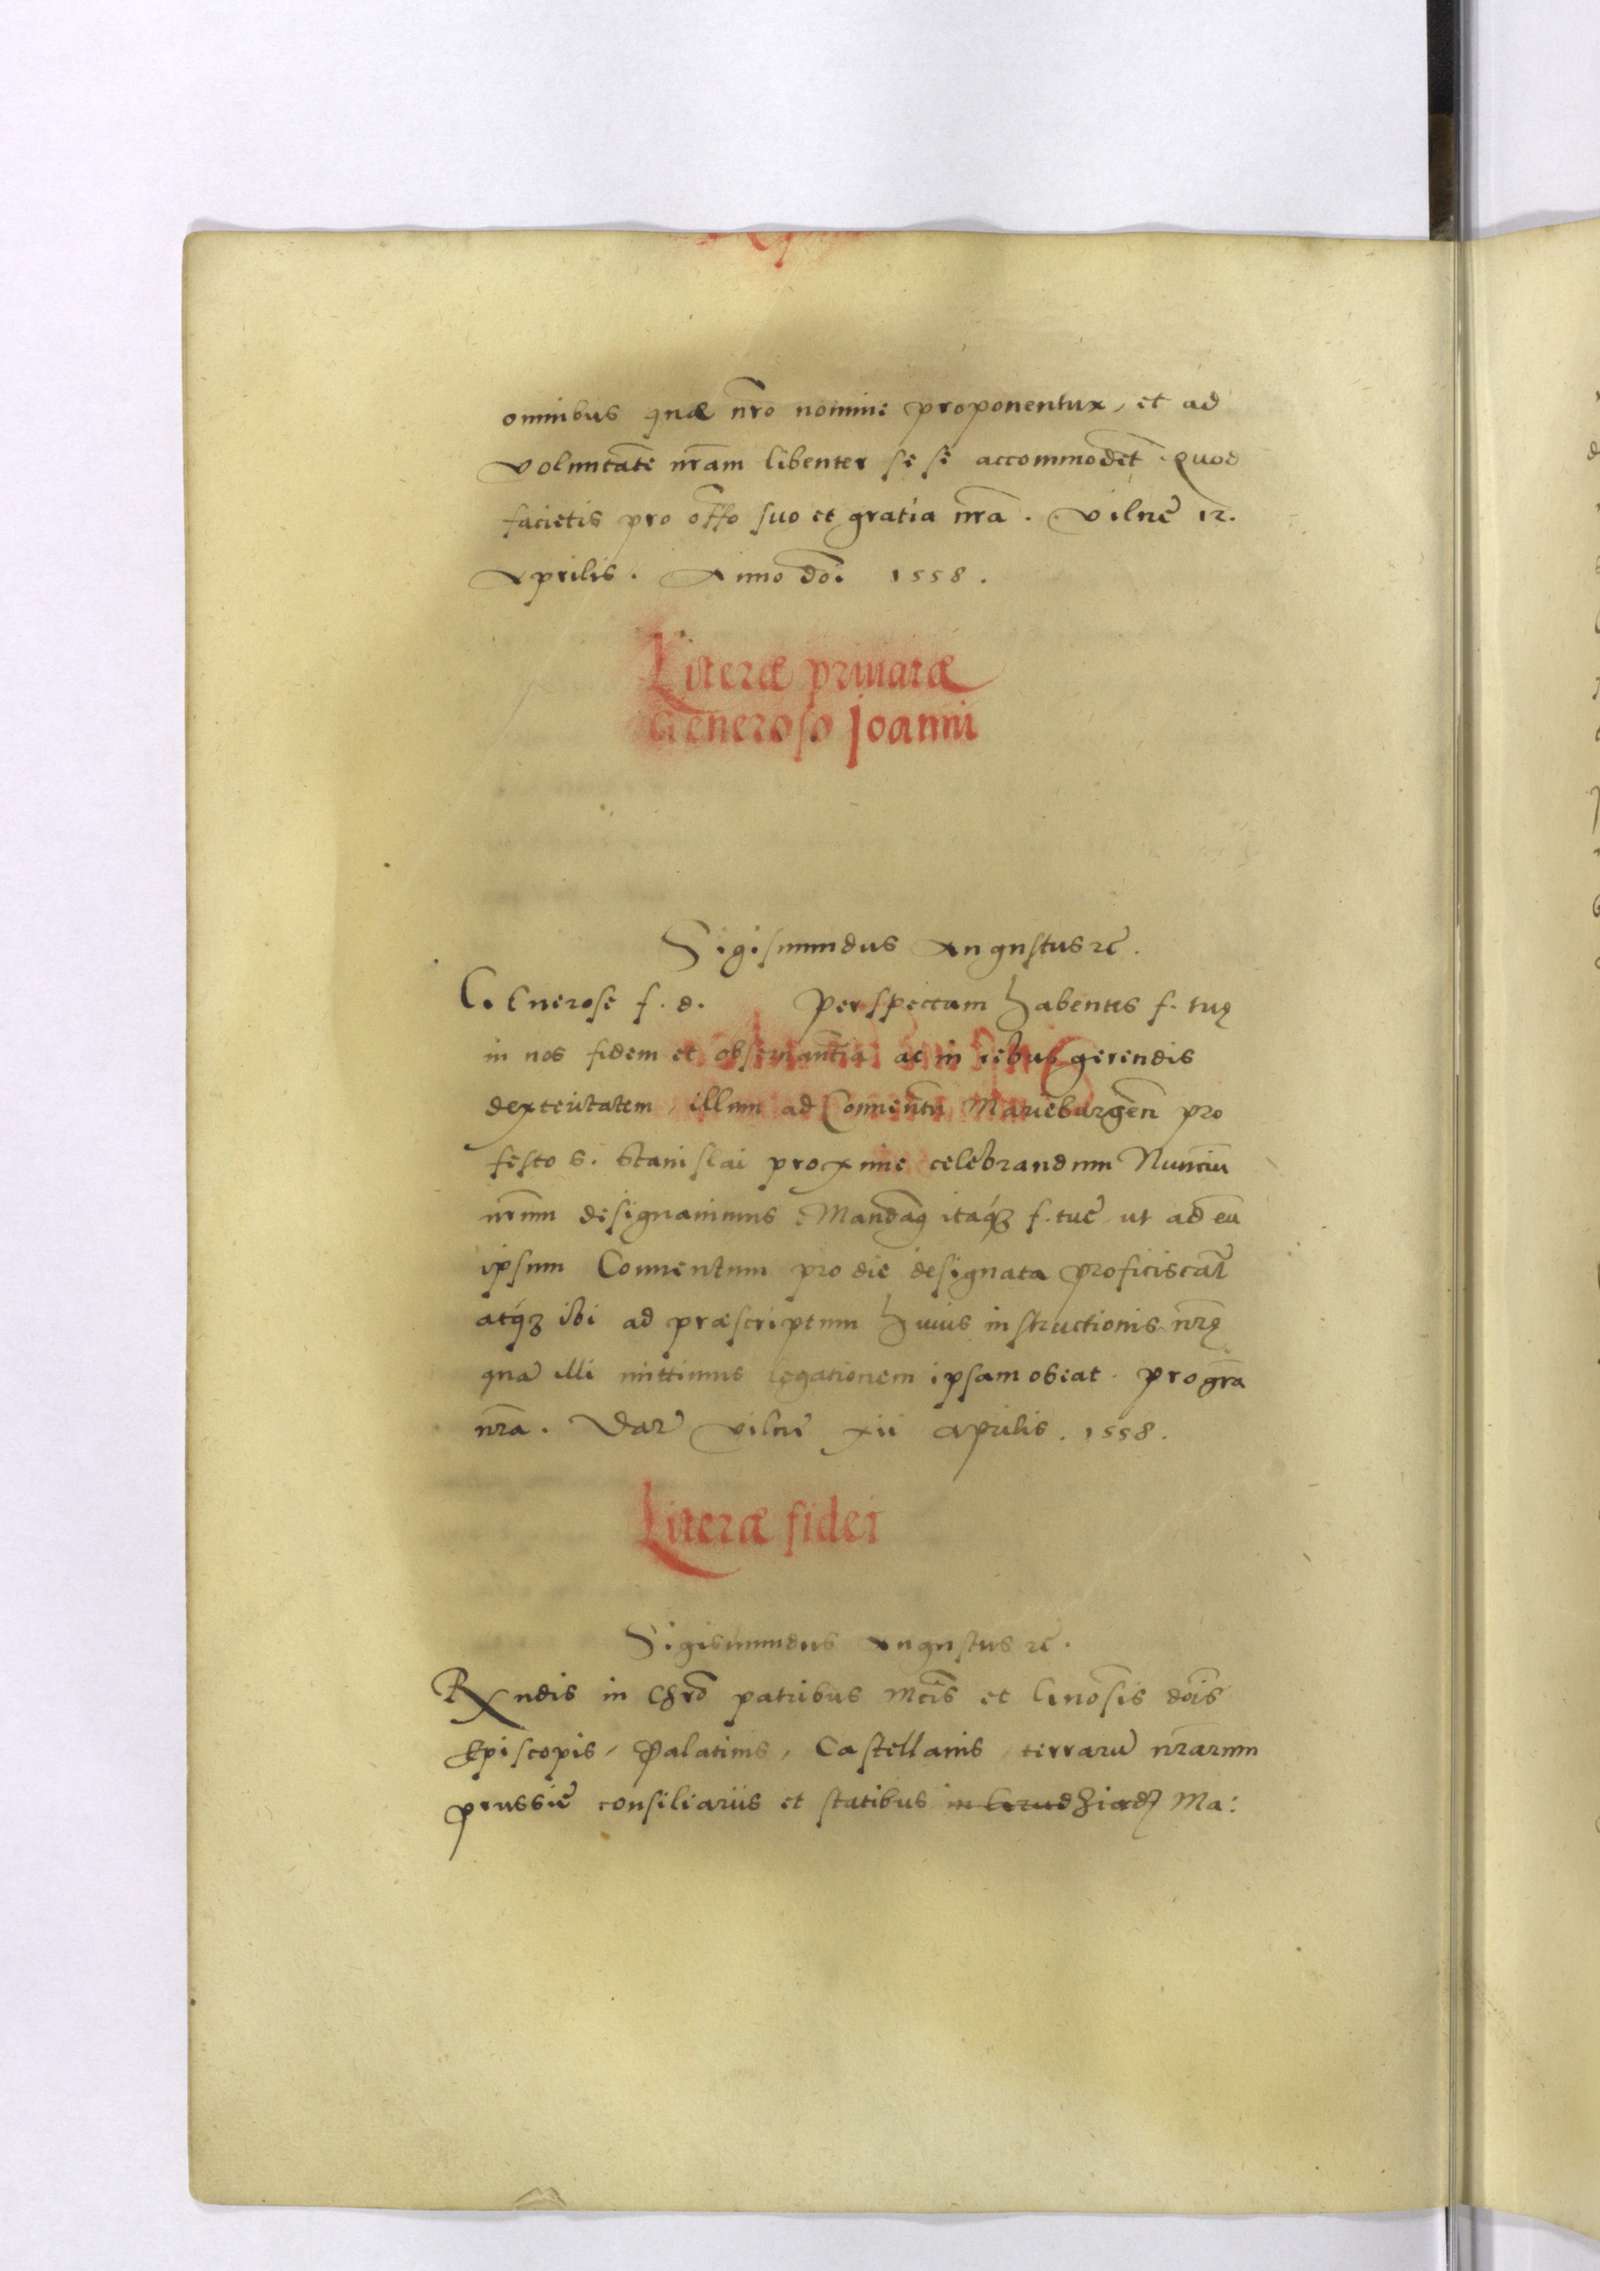 omnibus quæ nr̃o nomine proponentur, et ad
voluntatẽ nr̃am libenter se se accommodẽt. Quod
facietis pro offo suo et gratia nr̃a. Vilnę 12.
Aprilis. Anno dõ. 1558.
Literæ priuatæ
Generoso Joanni
Sigismundus Augustus rc̃.
Generose f. d. Perspectam habentes f. tuę
in nos fidem et obseruantiã ac in rebus gerendis
dexteritatem, illum ad Conuentũ Mariẽburgeñ pro
festo S. Stanislai proxime celebrandum Nunciũ
nr̃um designauimus. Mandamꝯ itaqꝫ f. tuę ut ad eũ
ipsum Conuentum pro die designata proficiscat̃
atqꝫ ibi ad præscriptum huius instructionis nr̃ę
quã illi mittimus legationem ipsam obeat. pro gr̃a
nr̃a. Dat̃ Vilnę xii Aprilis. 1558.
Literæ fidei
Sigismundus Augustus rc̃.
Rx̃ndis in Chrõ patribus Mcis̃ et Gnosis̃ dois̃
Episcopis, Palatinis, Castellanis, terrarũ nr̃arum
Prussię consiliariis et statibus in Ma: